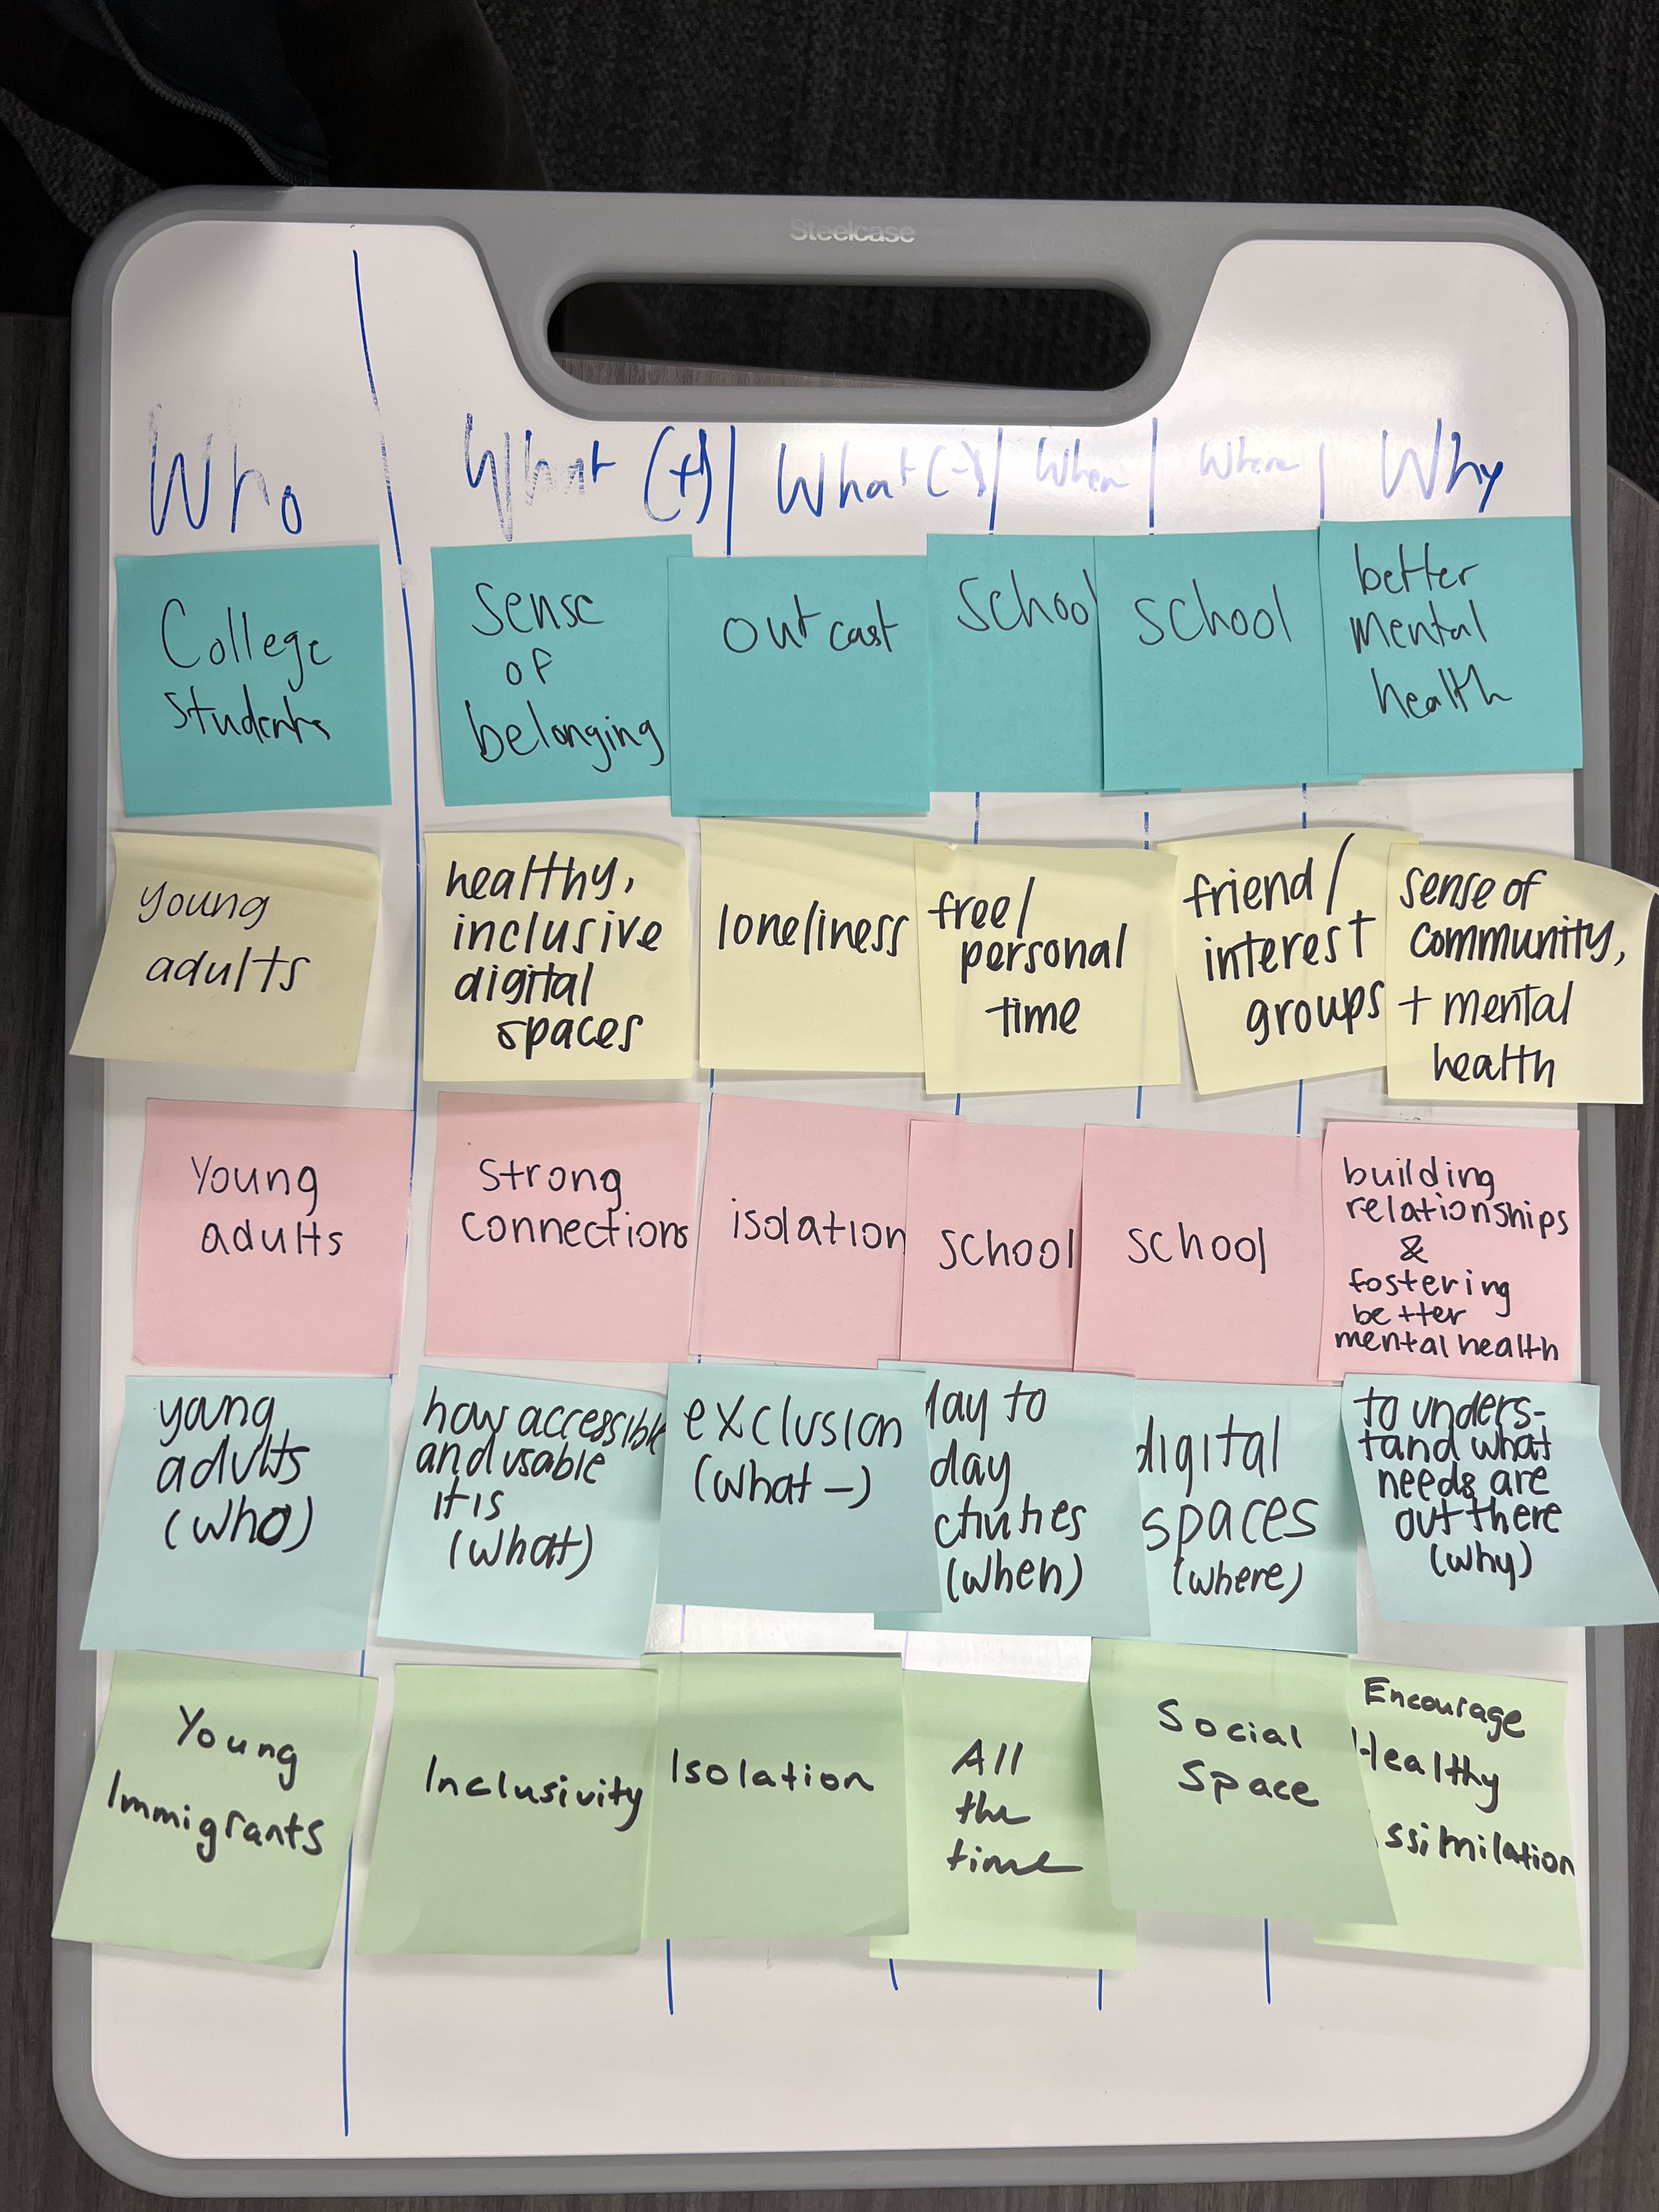 Steelcase
Who What (+) What (-) When Where Why
College
students
Sense
of
belonging
outcast
School
school
better
mental
health
young
adults
healthy,
inclusive
digital
spaces
loneliness
free/
personal
time
friend/
interest
groups
sense of
community,
+ mental
health
Young
adults
strong
connections
isolation
school
school
building
relationships
&
fostering
better
mental health
young
adults
(who)
how accessible
and usable
it is
(what)
exclusion
(what -)
day to
day
ctivities
(when)
digital
spaces
(where)
to unders-
tand what
needs are
out there
(why)
Young
Immigrants
Inclusivity
Isolation
All
the
time
Social
Space
Encourage
Healthy
ssimilation